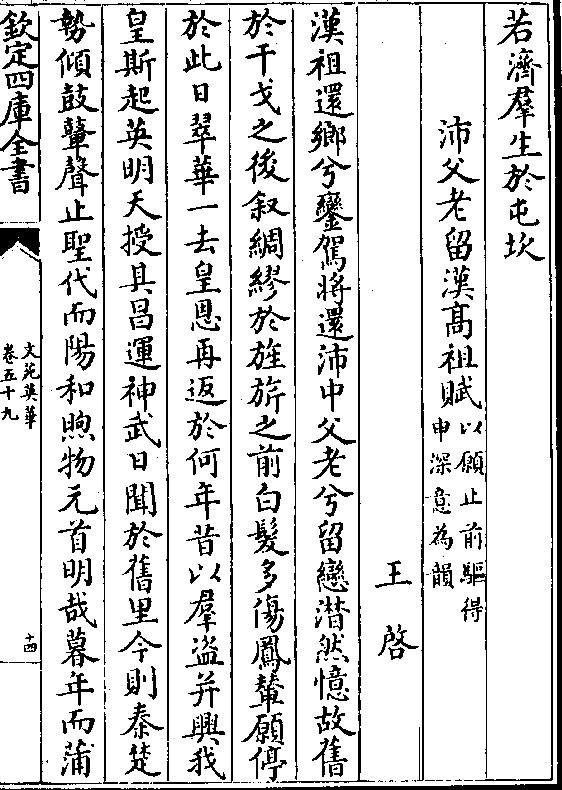 若濟羣生於屯坎
沛父老留漢髙祖賦以願止前驅得
申深意為韻
王啓
漢祖還鄉兮鑾駕將還沛中父老兮留戀潸然憶故舊
於干戈之後叙綢繆於旌旂之前白髮多傷鳳輦願停
於此日翠華一去皇恩再返於何年昔以羣盗并興我
皇斯起英明天授具昌運神武日聞於舊里今則秦楚
勢傾鼓鼙聲止聖代而陽和煦物元首明哉暮年而蒲
欽定四庫全書
文苑英華
卷五十九
十四